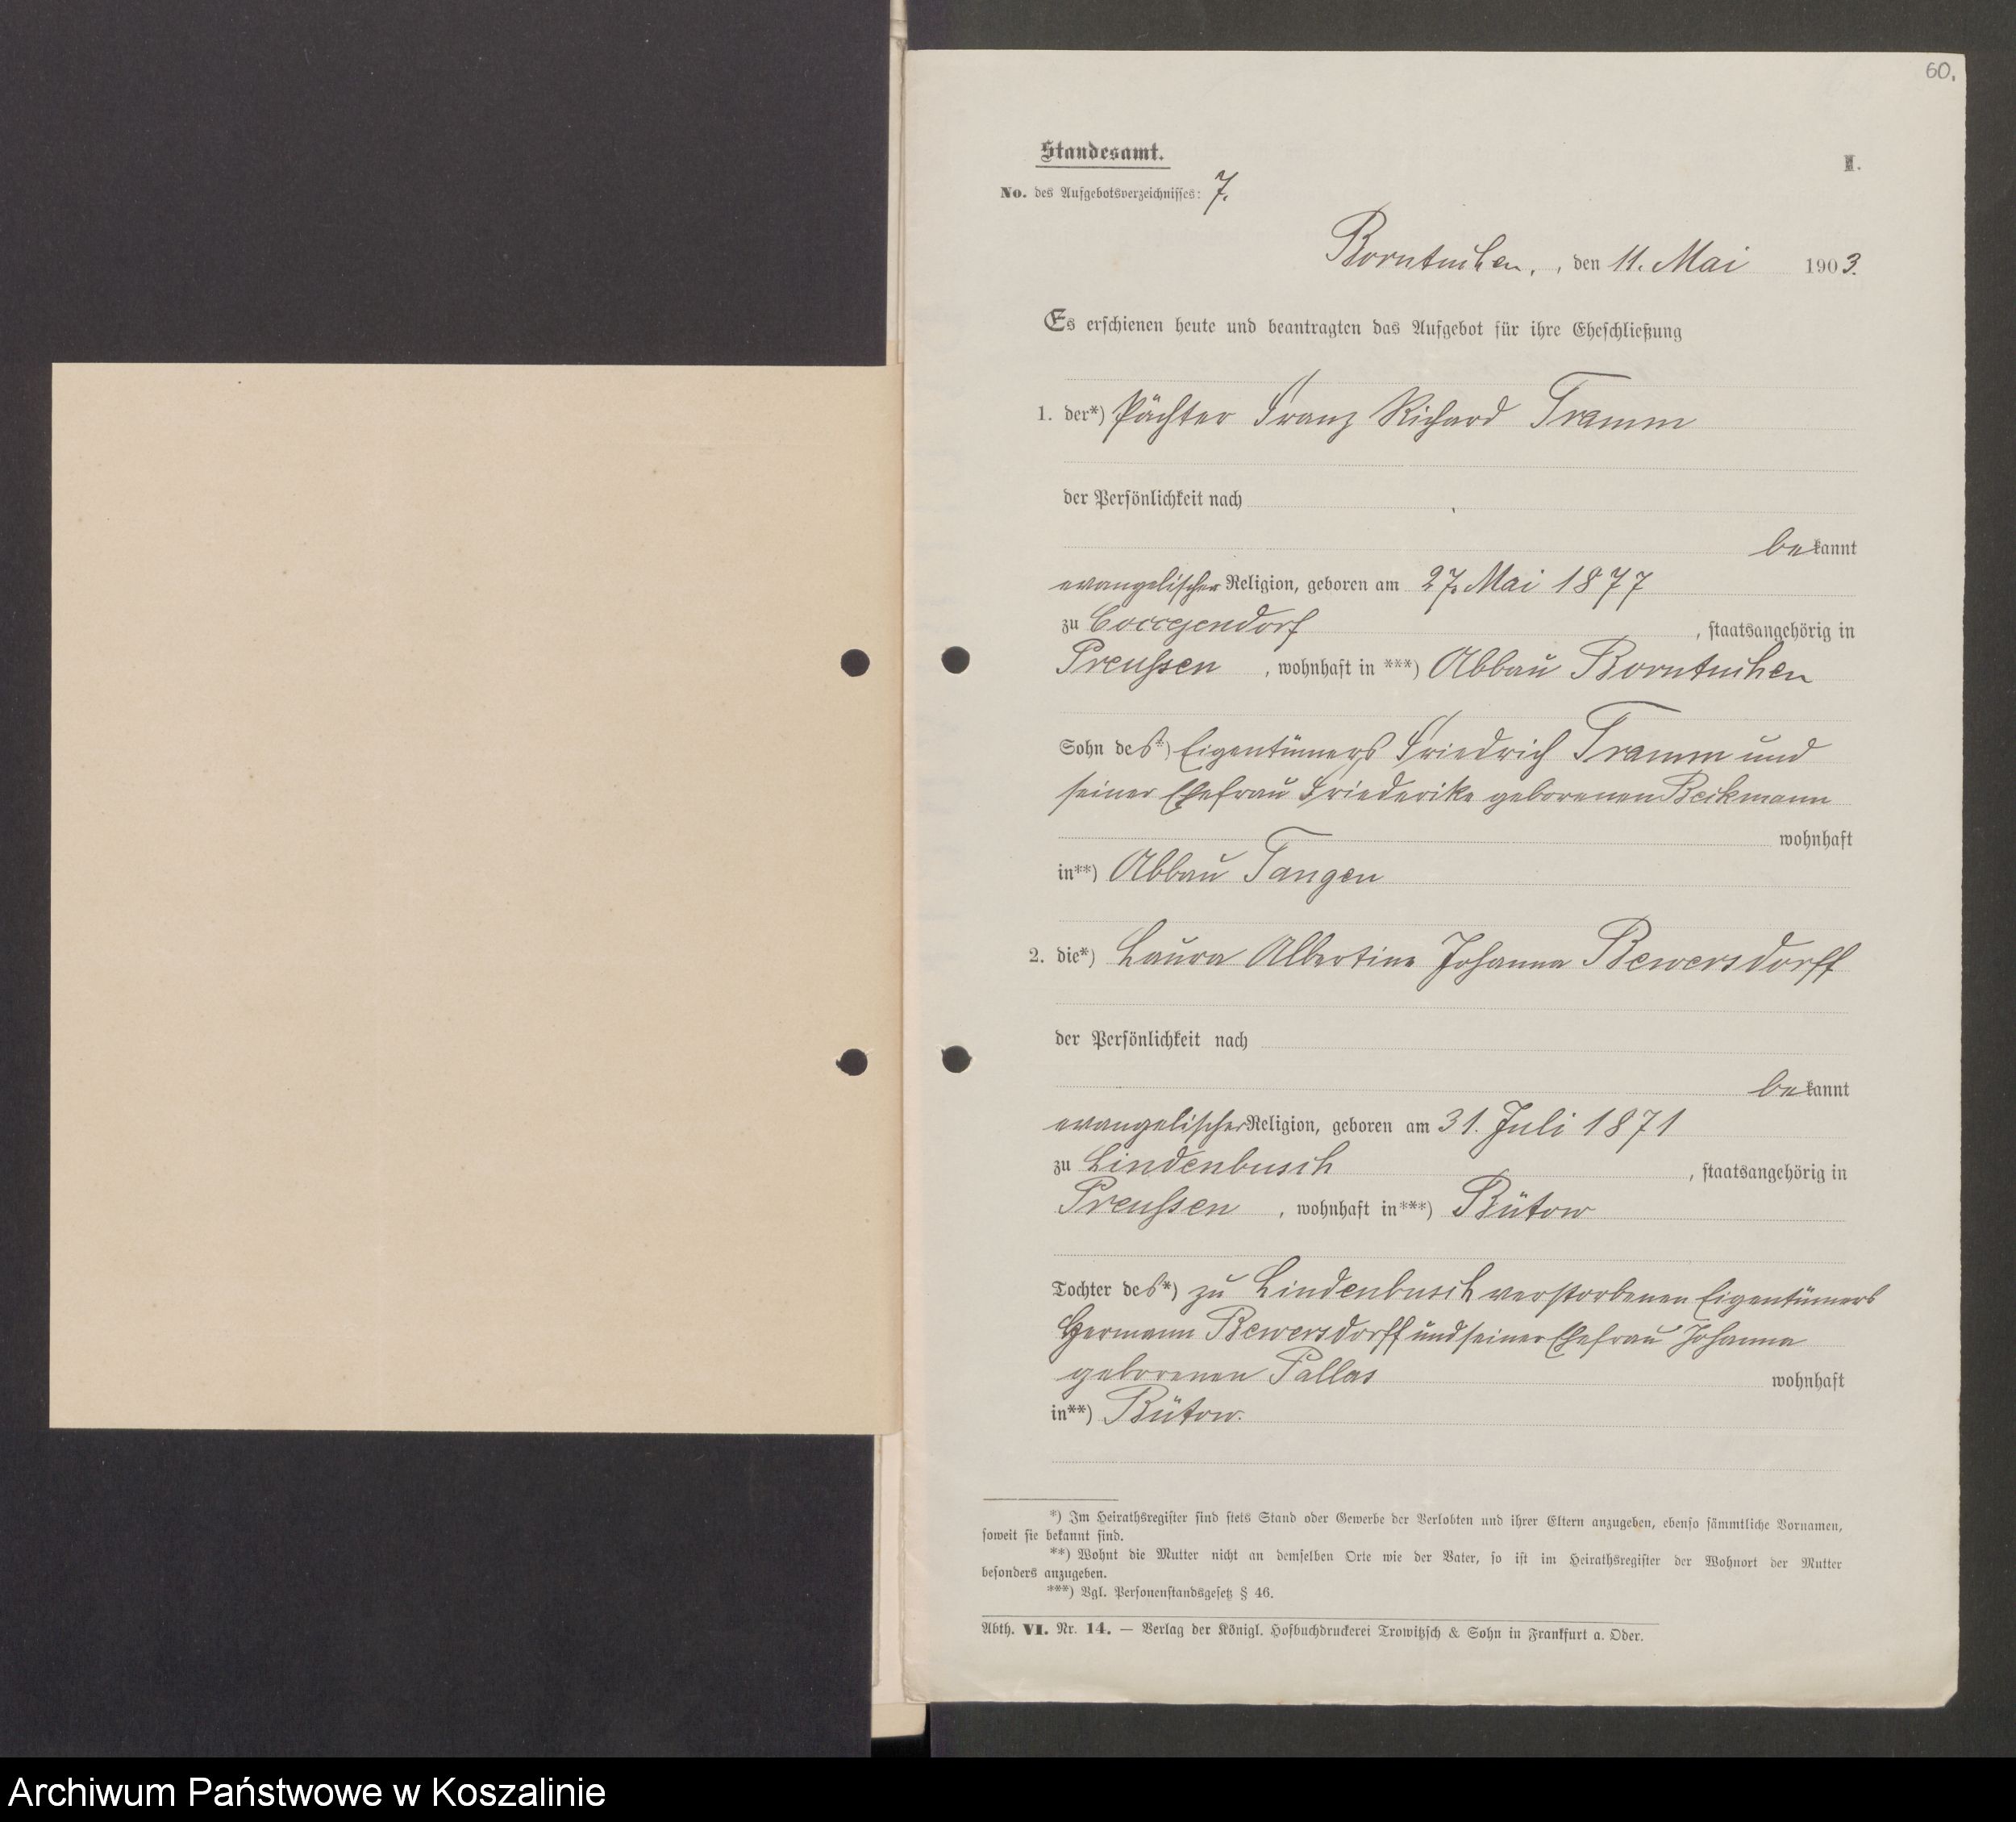 60.
Standesamt.
II.
No. des Aufgebotsverzeichnisses: 7.
Borntuchen, , den 11. Mai 1903.
Es erschienen heute und beantragten das Aufgebot für ihre Eheschließung
1. der*) Pächter Franz Richard Tramm
der Persönlichkeit nach
bekannt
evangelischer Religion, geboren am 27. Mai 1877
zu Coccejendorf , staatsangehörig in
Preussen , wohnhaft in ***) Abbau Borntuchen
Sohn des*) Eigentümers Friedrich Tramm und
seiner Ehefrau Friederike geborenen Beckmann
wohnhaft
in**) Abbau Tangen
2. die*) Laura Albertine Johanna Bewersdorff
der Persönlichkeit nach
bekannt
evangelischer Religion, geboren am 31. Juli 1871
zu Lindenbusch , staatsangehörig in
Preussen , wohnhaft in***) Bütow
Tochter des*) zu Lindenbusch verstorbenen Eigentümers
Hermann Bewersdorff und seiner Ehefrau Johanna
geborenen Pallas wohnhaft
in**) Bütow.
*) Im Heirathsregister sind stets Stand oder Gewerbe der Verlobten und ihrer Eltern anzugeben, ebenso sämmtliche Vornamen,
soweit sie bekannt sind.
**) Wohnt die Mutter nicht an demselben Orte wie der Vater, so ist im Heirathsregister der Wohnort der Mutter
besonders anzugeben.
***) Vgl. Personenstandsgesetz § 46.
Abth. VI. Nr. 14. — Verlag der Königl. Hofbuchdruckerei Trowitzsch & Sohn in Frankfurt a. Oder.
Archiwum Państwowe w Koszalinie